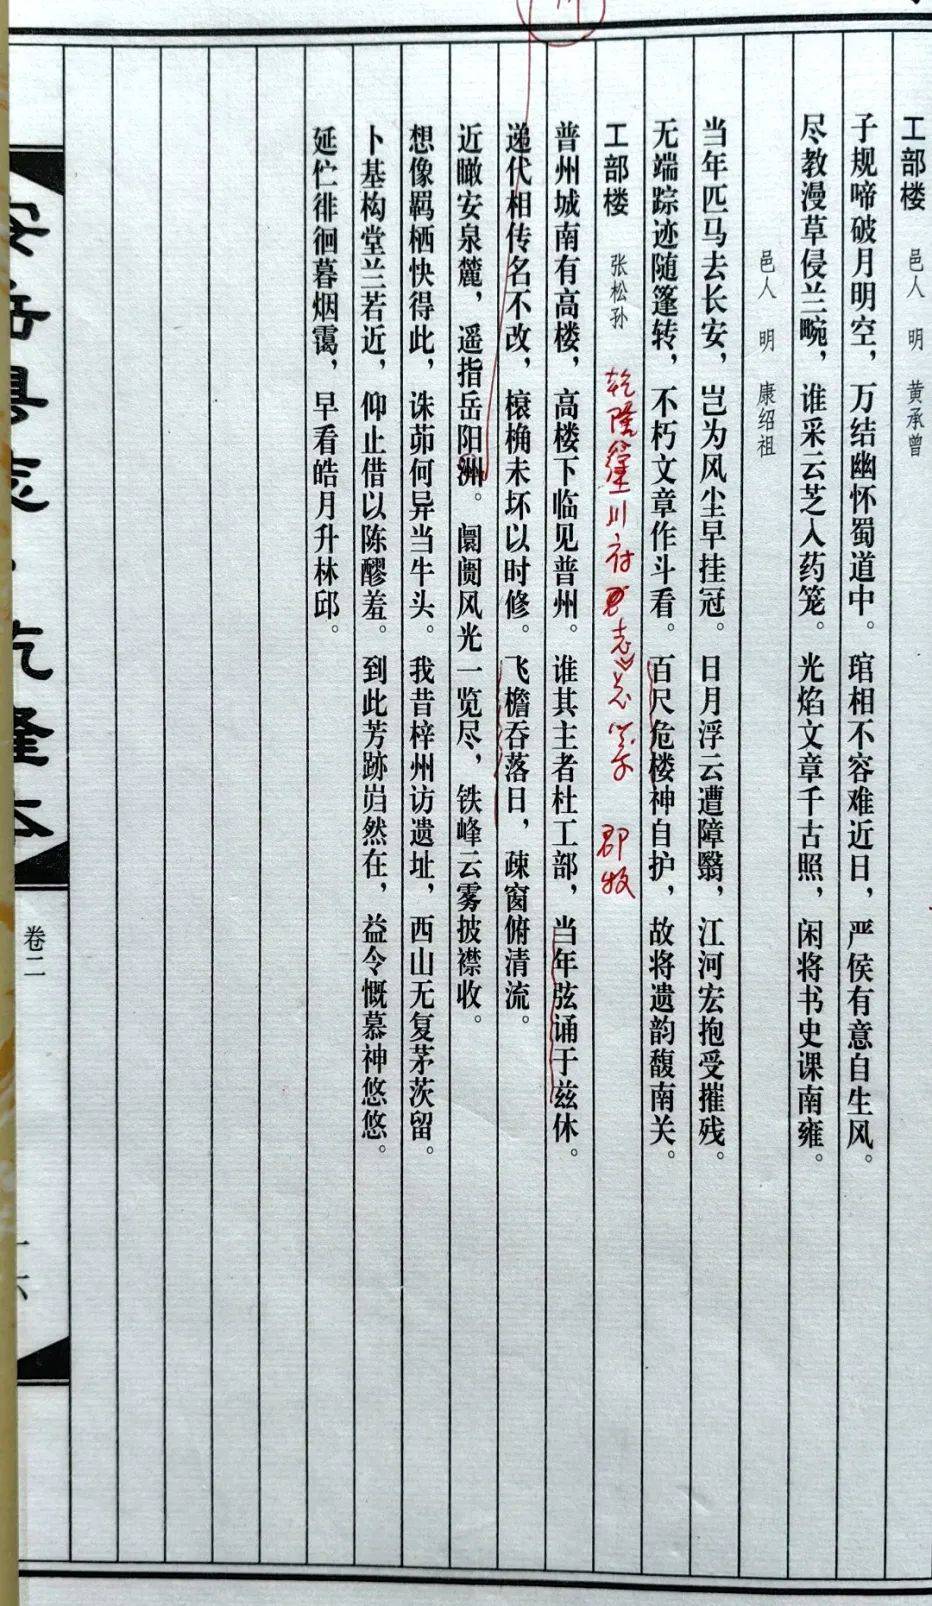 工部楼 邑人 明 黄承曾
子规啼破月明空，万结幽怀蜀道中。琯相不容难近日，严侯有意自生风。
尽教漫草侵兰畹，谁采云芝入药笼。光焰文章千古照，闲将书史课南雍。
邑人 明 康绍祖
当年匹马去长安，岂为风尘早挂冠。日月浮云遭障翳，江河宏抱受摧残。
无端踪迹随篷转，不朽文章作斗看。百尺危楼神自护，故将遗韵馥南关。
工部楼 张松孙 乾隆 川 府 志 总 郡牧
普州城南有高楼，高楼下临见普州。谁其主者杜工部，当年弦诵于兹休。
递代相传名不改，榱桷未坏以时修。飞檐吞落日，疎窗俯清流。
近瞰安泉麓，遥指岳阳洲。阛阓风光一览尽，铁峰云雾披襟收。
想像羁栖快得此，诛茆何异当牛头。我昔梓州访遗址，西山无复茅茨留。
卜基构堂兰若近，仰止借以陈醪羞。到此芳跡岿然在，益令慨慕神悠悠。
延伫徘徊暮烟霭，早看皓月升林邱。
安岳县志·乾隆本
卷二
一六